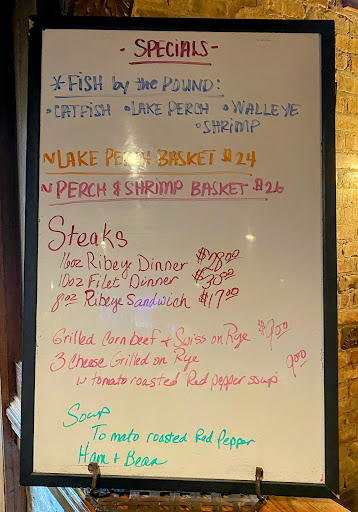 - SPECIALS -
* FISH by the POUND:
• CATFISH • LAKE PERCH • WALLEYE
• SHRIMP
~ LAKE PERCH BASKET $24
~ PERCH & SHRIMP BASKET $26
Steaks
16oz Ribeye Dinner $28.00
10oz Filet Dinner $30.00
8oz Ribeye Sandwich $17.00
Grilled Corn beef + Swiss on Rye $9.00
3 Cheese Grilled on Rye
w tomato roasted Red pepper soup 9.00
Soup
Tomato roasted Red Pepper
Ham + Bean